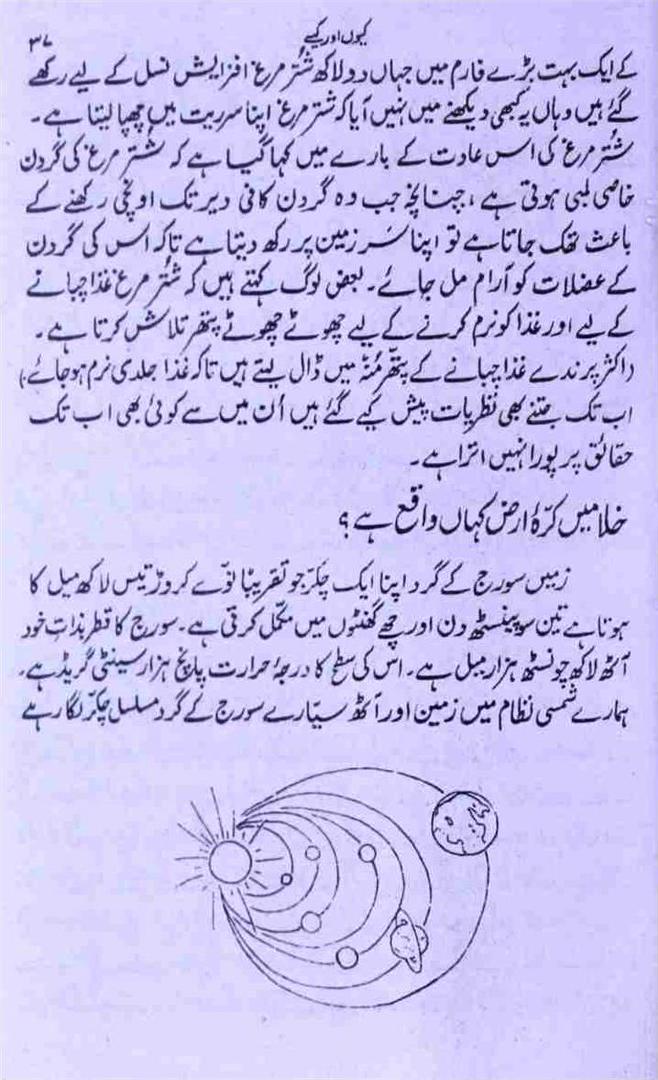 کیوں اور کیسے
۳۷
کے ایک بہت بڑے فارم میں جہاں دو لاکھ شتر مرغ افزایش نسل کے لیے رکھے
گئے ہیں وہاں یہ کبھی دیکھنے میں نہیں آیا کہ شتر مرغ اپنا سر ریت میں چھپا لیتا ہے۔
شتر مرغ کی اس عادت کے بارے میں کہا گیا ہے کہ شتر مرغ کی گردن
خاصی لمبی ہوتی ہے، چنانچہ جب وہ گردن کافی دیر تک اونچی رکھنے کے
باعث تھک جاتا ہے تو اپنا سر زمین پر رکھ دیتا ہے تاکہ اس کی گردن
کے عضلات کو آرام مل جائے۔ بعض لوگ کہتے ہیں کہ شتر مرغ غذا چبانے
کے لیے اور غذا کو نرم کرنے کے لیے چھوٹے چھوٹے پتھر تلاش کرتا ہے۔
(اکثر پرندے غذا چبانے کے پتھر مُنہ میں ڈال لیتے ہیں تاکہ غذا جلدی نرم ہو جائے۔)
اب تک جتنے بھی نظریات پیش کیے گئے ہیں اُن میں سے کوئی بھی اب تک
حقائق پر پورا نہیں اترا ہے۔
خلا میں کرّۂ ارض کہاں واقع ہے؟
زمین سورج کے گرد اپنا ایک چکّر جو تقریبًا نوّے کروڑ تیس لاکھ میل کا
ہوتا ہے تین سو پینسٹھ دن اور چھے گھنٹوں میں مکمّل کرتی ہے۔ سورج کا قطر بذاتِ خود
آٹھ لاکھ چونسٹھ ہزار میل ہے۔ اس کی سطح کا درجۂ حرارت پانچ ہزار سینٹی گریڈ ہے۔
ہمارے شمسی نظام میں زمین اور آٹھ سیّارے سورج کے گرد مسلسل چکّر لگا رہے